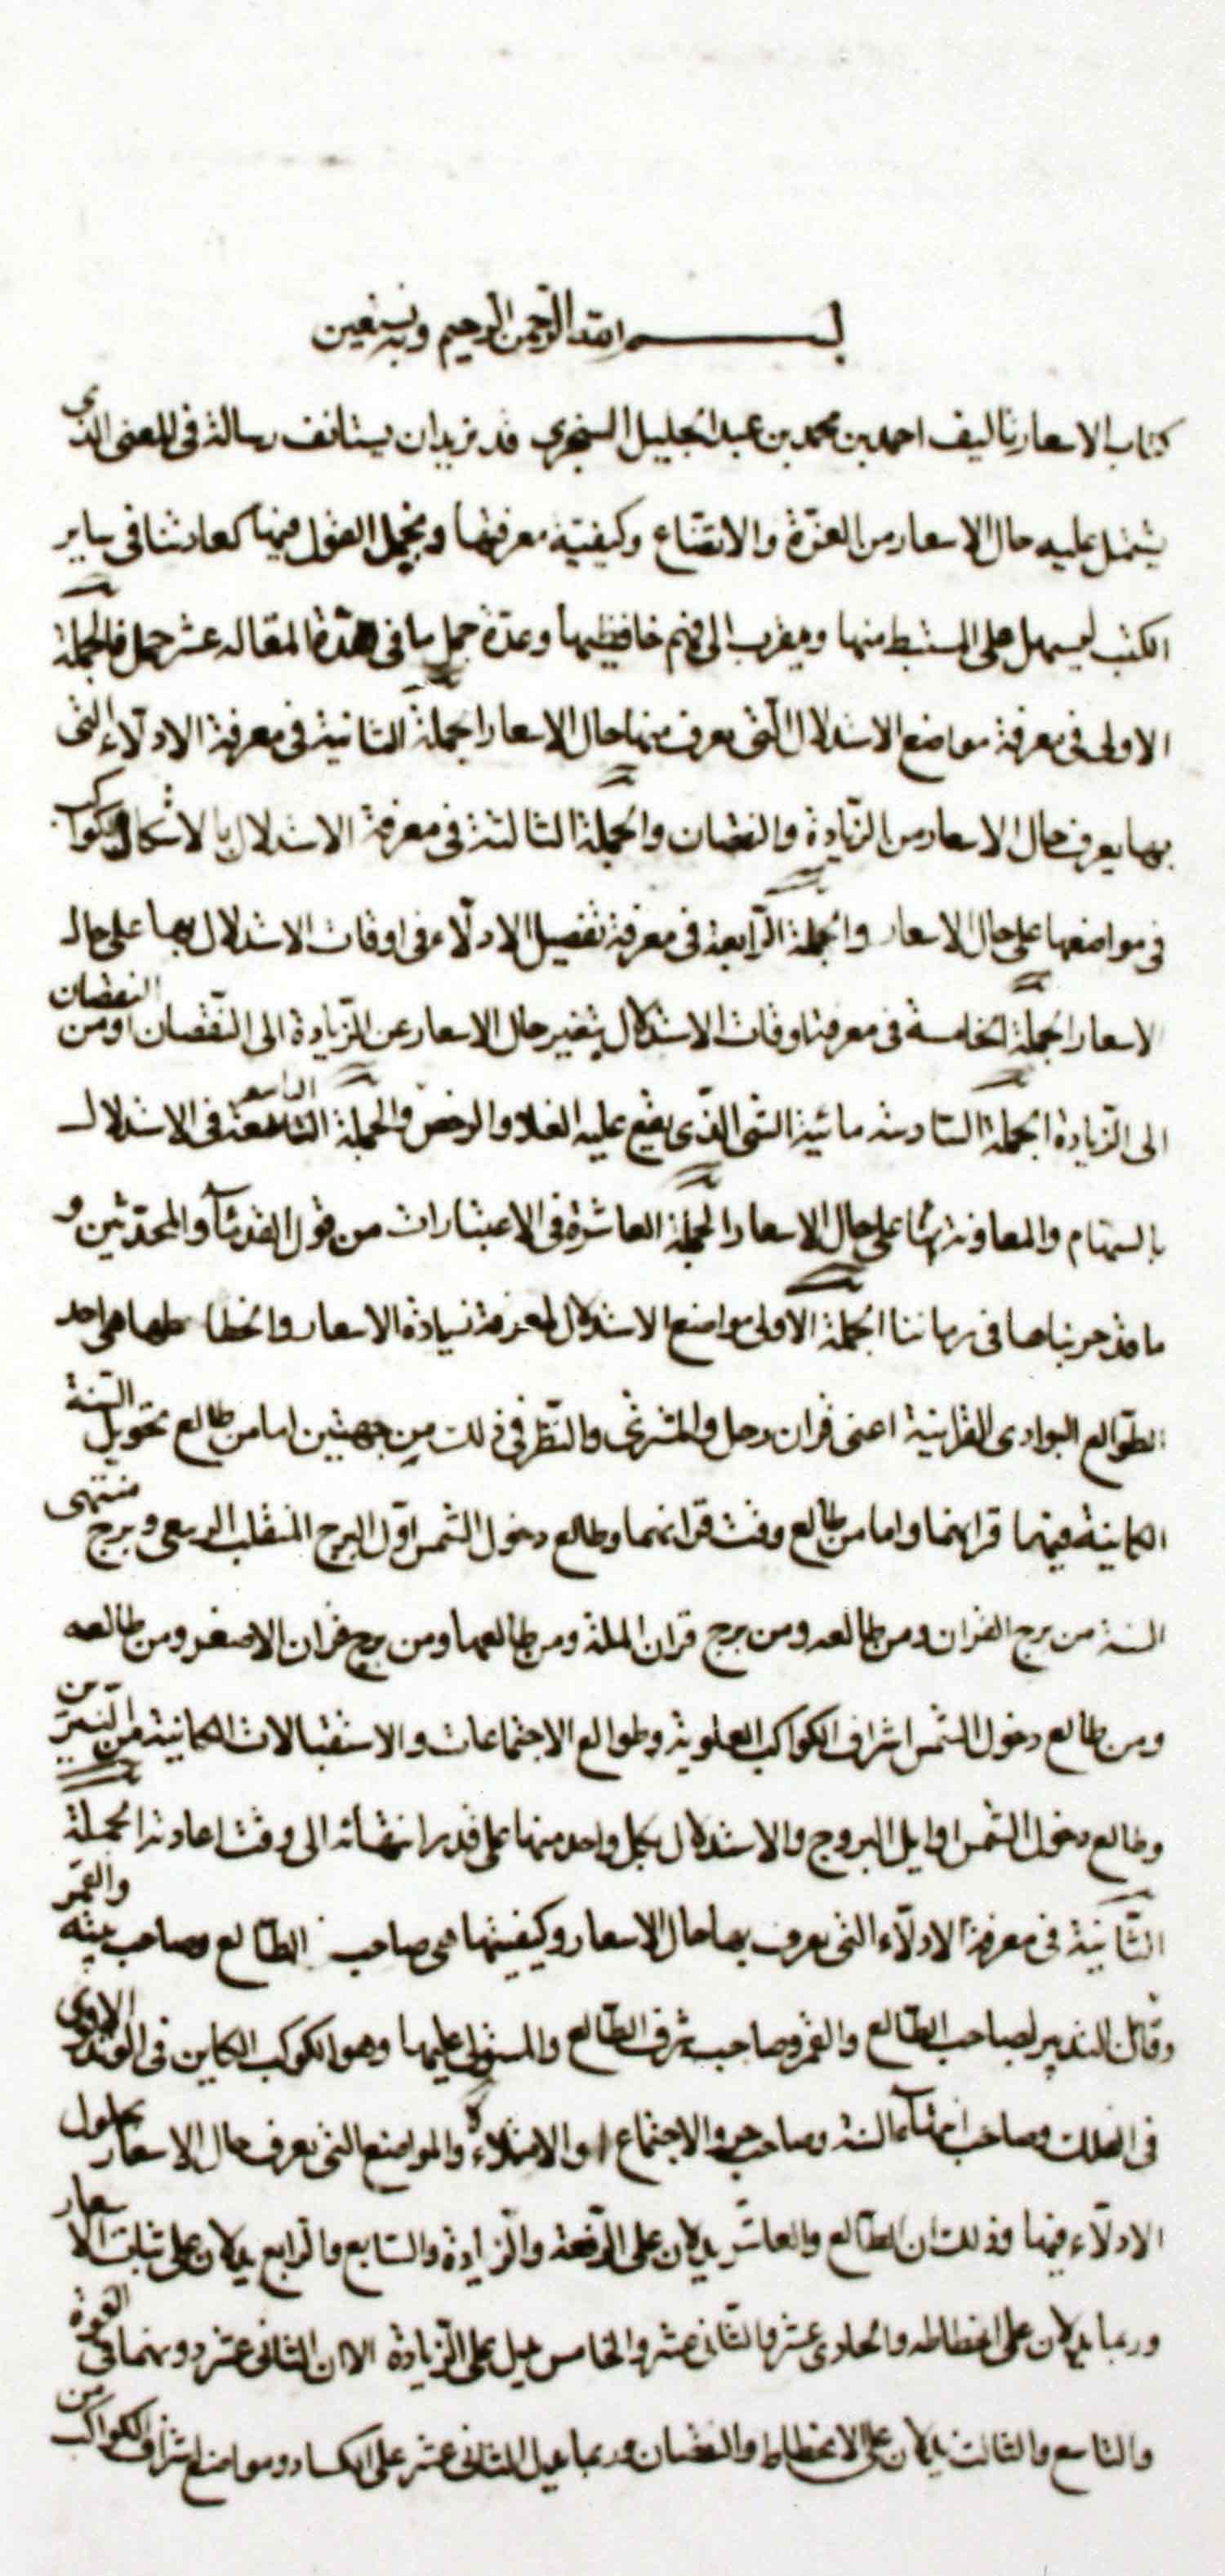 بسم الله الرحمن الرحيم وبه نستعين
كتاب الاسعار تاليف احمد بن محمد بن عبد الجليل السنجري قد نريد ان يستانف رسالة في المعنى الذي
يشتمل عليه حال الاسعار من العزة والاتضاع وكيفية معرفتها ونجمل القول فيها كعادتنا في ساير
الكتب ليسهل على المستنبط منها ويقرب الى فهم حافظيها وعدة جمل ما في هذة المقاله عشر جمل فالجملة
الاولى في معرفة مواضع الاستدلال التي يعرف منها حال الاسعار الجملة الثانية في معرفة الادلاء التي
بها يعرف حال الاسعار من الزيادة والنقصان والجملة الثالثة في معرفة الاستدلال بالاشكال والكواكب
في مواضعها على حال الاسعار والجملة الرابعة في معرفة تفصيل الادلاء في اوقات الاستدلال بها على حال
الاسعار الجملة الخامسة في معرفة اوقات الاستدلال بتغير حال الاسعار عن الزيادة الى النقصان او من النقصان
الى الزيادة الجملة السادسة مائية الشئ الذي يقع عليه الغلا والرخص والجملة التاسعة في الاستدلال
بالسهام والمعاونة بها على حال الاسعار الجملة العاشرة في الاعتبارات من قول القدماء والمحدثين و
ما قد جربناها في زماننا الجملة الاولى مواضع الاستدلال لمعرفة زيادة الاسعار وانحطاطها هي احد
الطوالع البوادى القرانية اعنى قران زحل والمشترى والنظر في ذلك من جهتين اما من طالع تحويل السنة
الكاينة فيها قرانهما واما من طالع وقت قرانهما وطالع دخول الشمس اول البرج المنقلب الربيعى وبرج منتهى
السنة من برج القران ومن طالعه ومن برج قران الملة ومن طالعها ومن برج قران الاصغر ومن طالعه
ومن طالع دخول الشمس اشراف الكواكب العلوية وطوالع الاجتماعات والاستقبالات الكاينة من النيرين
وطالع دخول الشمس اوايل البروج والاستدلال بكل واحد منها على قدر انتهائه الى وقت اعادته الجملة
الثانية في معرفة الادلاء التي يعرف بها حال الاسعار وكيفيتها هي صاحب الطالع وصاحب بيته والقمر
وقابل التدبير لصاحب الطالع والقمر وصاحب شرف الطالع والمستولى عليها وهو الكوكب الكاين في الوتد الاوى
في الفلك وصاحب انتهاء السنة وصاحب جزو الاجتماع او الامتلاء والمواضع التي يعرف حال الاسعار بحلول
الادلاء فيها وذلك ان الطالع والعاشر يدلان على الرفعة والزيادة والسابع والرابع يدلان على ثبات الاسعار
وربما يدلان على انحطاطه والحادى عشر والثانى عشر والخامس يدل على الزيادة الا ان الثانى عشر دونهما في القوة
والتاسع والثالث يدلان على الانحطاط والنقصان وربما يدل الثانى عشر على الكساد ومواضع اشراف الكواكب من